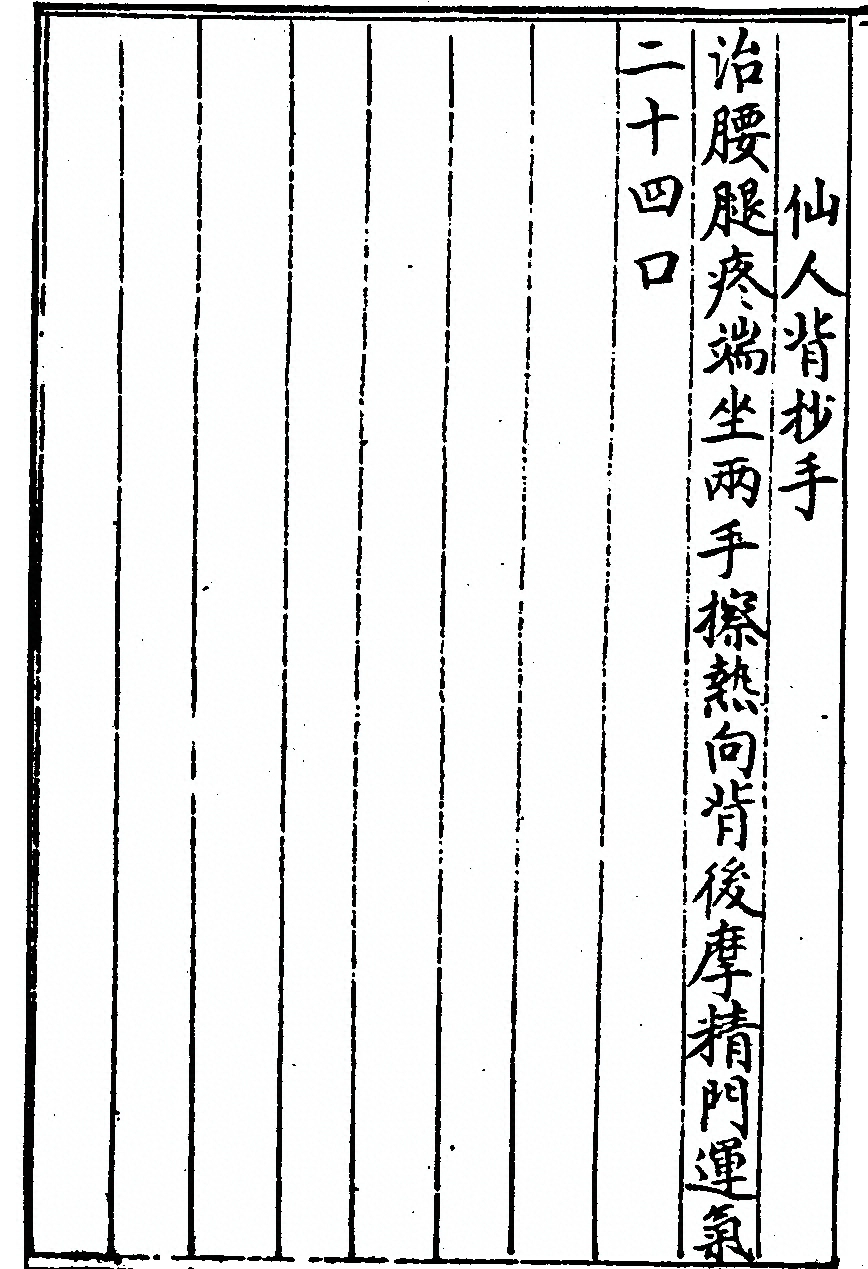 仙人背抄手
治腰腿疼端坐兩手擦熱向背後摩精門運氣
二十四口